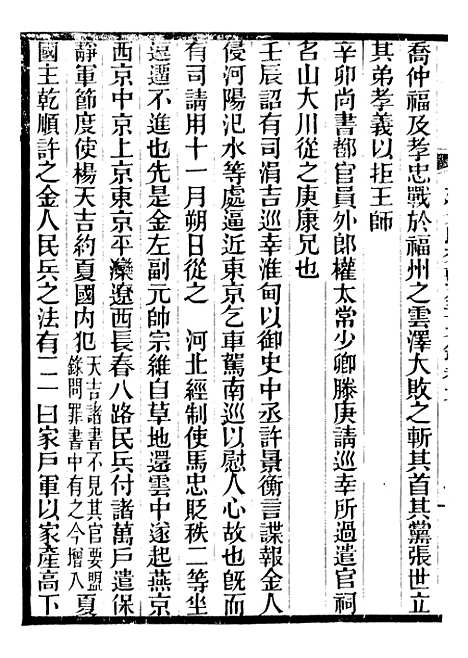 喬仲福及孝忠戰於福州之雲澤大敗之斬其首其黨張世立
其弟孝義以拒王師
辛卯尚書都官員外郎權太常少卿滕庚請巡幸所過遣官祠
名山大川從之庚康兄也
壬辰詔有司涓吉巡幸淮甸以御史中丞許景衡言諜報金人
侵河陽汜水等處逼近東京乞車駕南巡以慰人心故也旣而
有司請用十一月朔日從之　河北經制使馬忠貶秩二等坐
逗遛不進也先是金左副元帥宗維自草地還雲中遂起燕京
西京中京上京東京平灤遼西長春八路民兵付諸萬戶遣保
靜軍節度使楊天吉約夏國內犯天吉諸書不見其官要盟錄問罪書中有之今增入夏
國主乾順許之金人民兵之法有二一曰家戶軍以家產高下